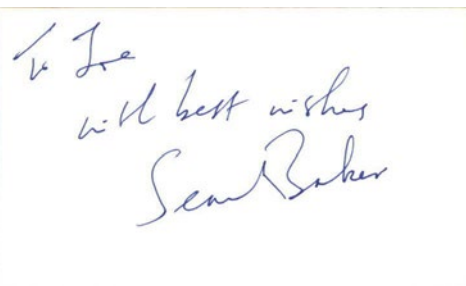 To Joe
with best wishes
Sean Baker